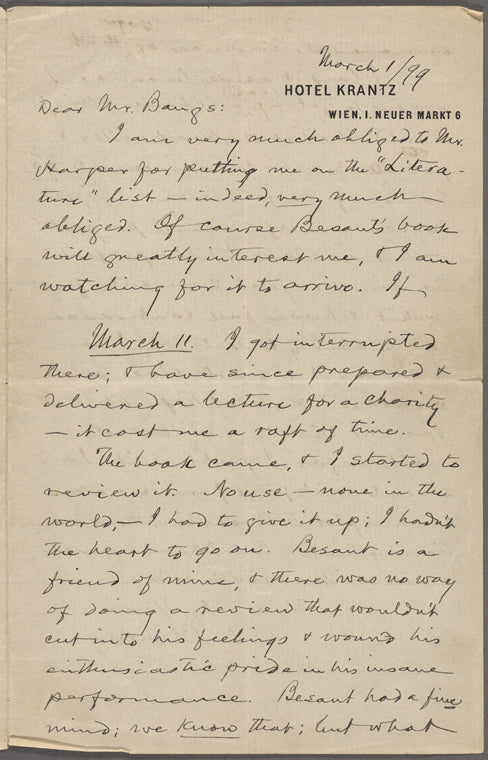 March 1/99
HOTEL KRANTZ
WIEN, I. NEUER MARKT 6
Dear Mr. Bangs:
I am very much obliged to Mr.
Harper for putting me on the "Litera-
ture" list — indeed, very much
obliged. Of course Besant's book
will greatly interest me, & I am
watching for it to arrive. If
March 11. I got interrupted
there; & have since prepared &
delivered a lecture for a charity
— it cost me a raft of time.
The book came, & I started to
review it. No use — none in the
world, — I had to give it up; I hadn't
the heart to go on. Besant is a
friend of mine, & there was no way
of doing a review that wouldn't
cut into his feelings & wound his
enthusiastic pride in his insane
performance. Besant had a fine
mind; we know that; but what